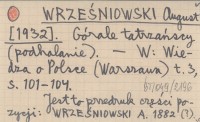 WRZEŚNIOWSKI August
[1932]. Górale tatrzańscy
(podhalanie). — W: Wie-
dza o Polsce (Warszawa) t. 3,
s. 101-104.
Jest to przedruk części po-
zycji: WRZEŚNIOWSKI A. 1882 (?).